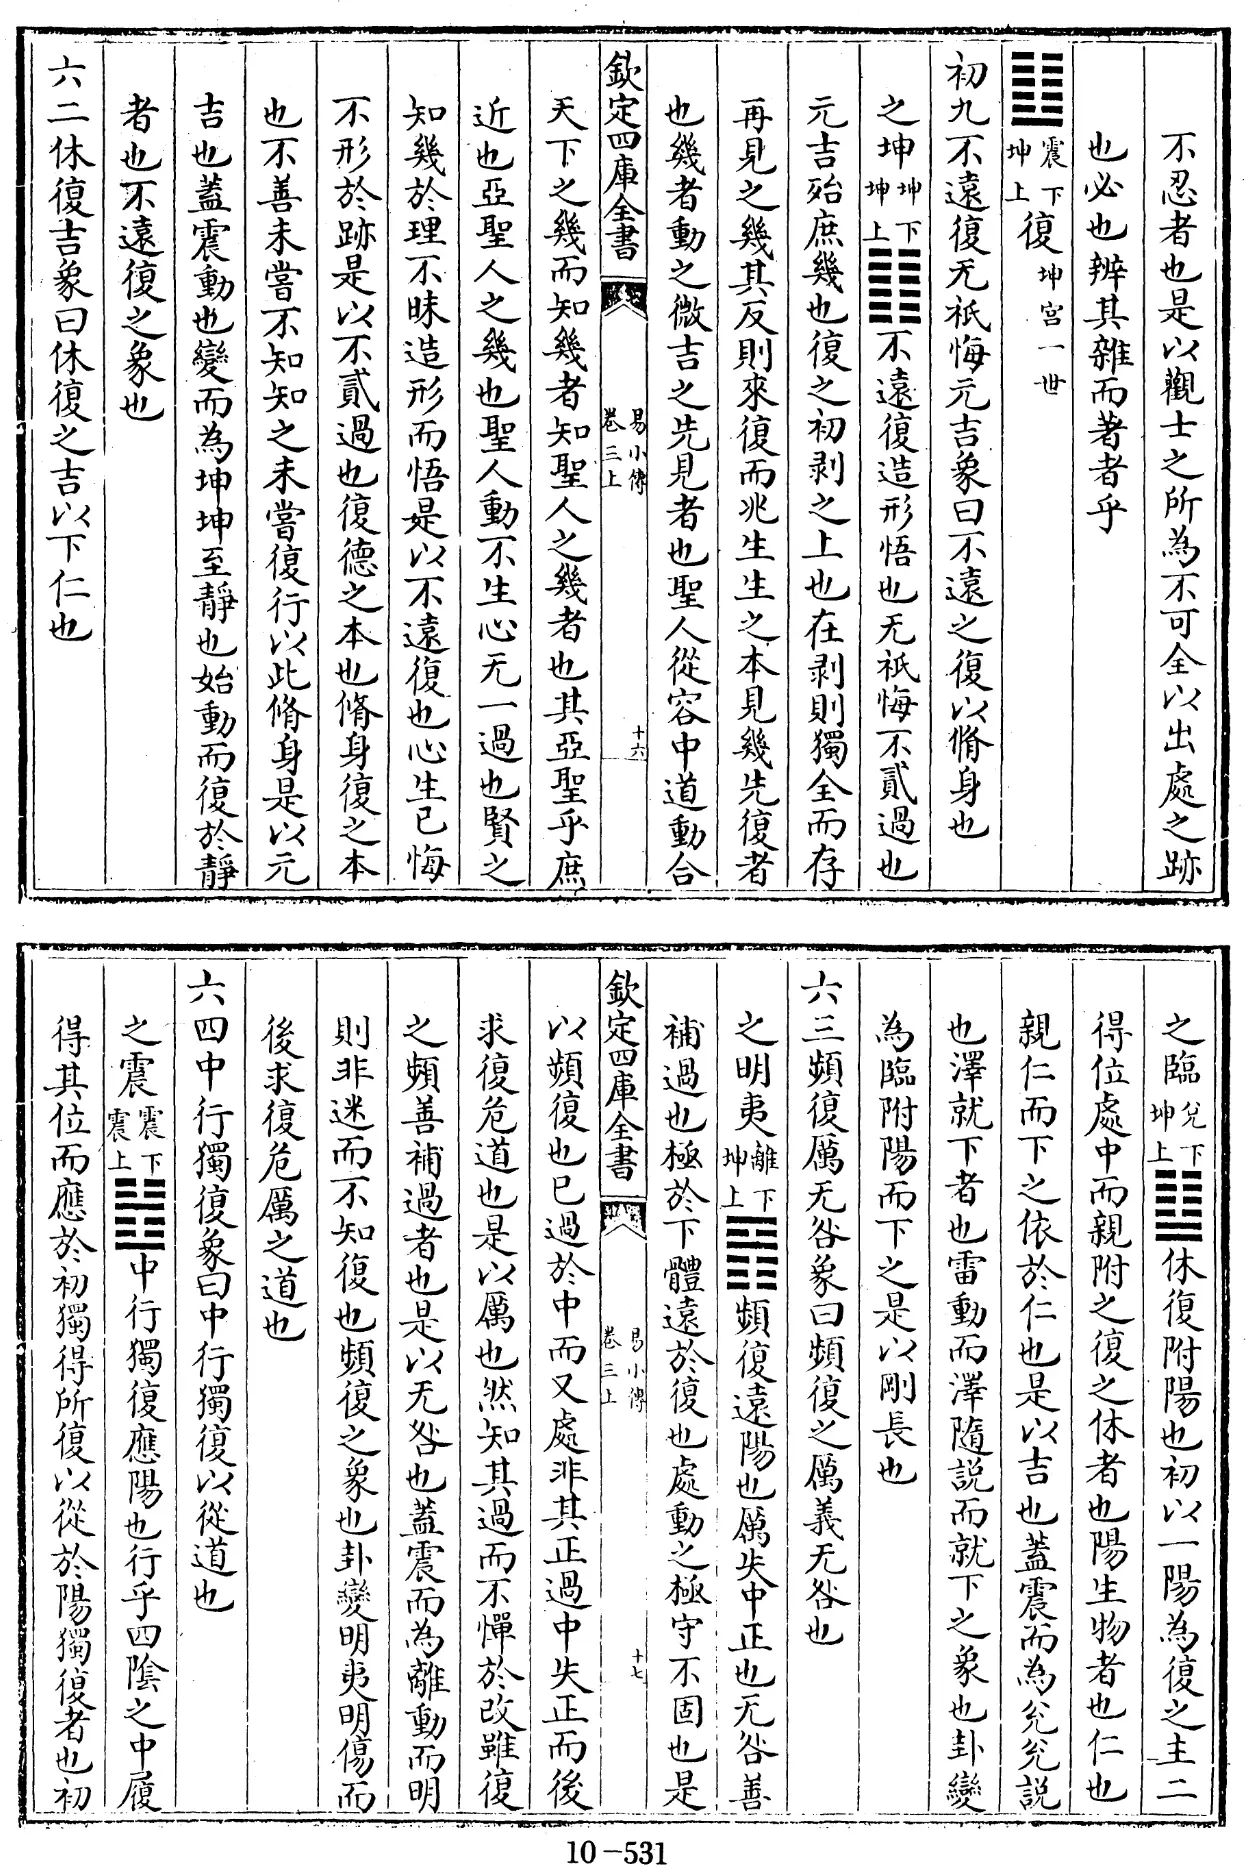 不忍者也是以觀士之所為不可全以出處之跡
也必也辨其雜而著者乎
䷗震下坤上復坤宮一世
初九不遠復无祇悔元吉象曰不遠之復以脩身也
之坤坤下坤上䷁不遠復造形悟也无祇悔不貳過也
元吉殆庶幾也復之初剥之上也在剥則獨全而存
再見之幾其反則來復而兆生生之本見幾先復者
也幾者動之微吉之先見者也聖人從容中道動合
欽定四庫全書 易小傳卷三上 十六
天下之幾而知幾者知聖人之幾者也其亞聖乎庶
近也亞聖人之幾也聖人動不生心无一過也賢之
知幾於理不昧造形而悟是以不遠復也心生已悔
不形於跡是以不貳過也復德之本也脩身復之本
也不善未嘗不知知之未嘗復行以此脩身是以元
吉也蓋震動也變而為坤坤至靜也始動而復於靜
者也不遠復之象也
六二休復吉象曰休復之吉以下仁也
之臨兌下坤上䷒休復附陽也初以一陽為復之主二
得位處中而親附之復之休者也陽生物者也仁也
親仁而下之依於仁也是以吉也蓋震而為兌兌説
也澤就下者也雷動而澤隨説而就下之象也卦變
為臨附陽而下之是以剛長也
六三頻復厲无咎象曰頻復之厲義无咎也
之明夷離下坤上䷣頻復遠陽也厲失中正也无咎善
補過也極於下體遠於復也處動之極守不固也是
欽定四庫全書 易小傳卷三上 十七
以頻復也已過於中而又處非其正過中失正而後
求復危道也是以厲也然知其過而不憚於改雖復
之頻善補過者也是以无咎也蓋震而為離動而明
則非迷而不知復也頻復之象也卦變明夷明傷而
後求復危厲之道也
六四中行獨復象曰中行獨復以從道也
之震震下震上䷲中行獨復應陽也行乎四陰之中履
得其位而應於初獨得所復以從於陽獨復者也初
10-531